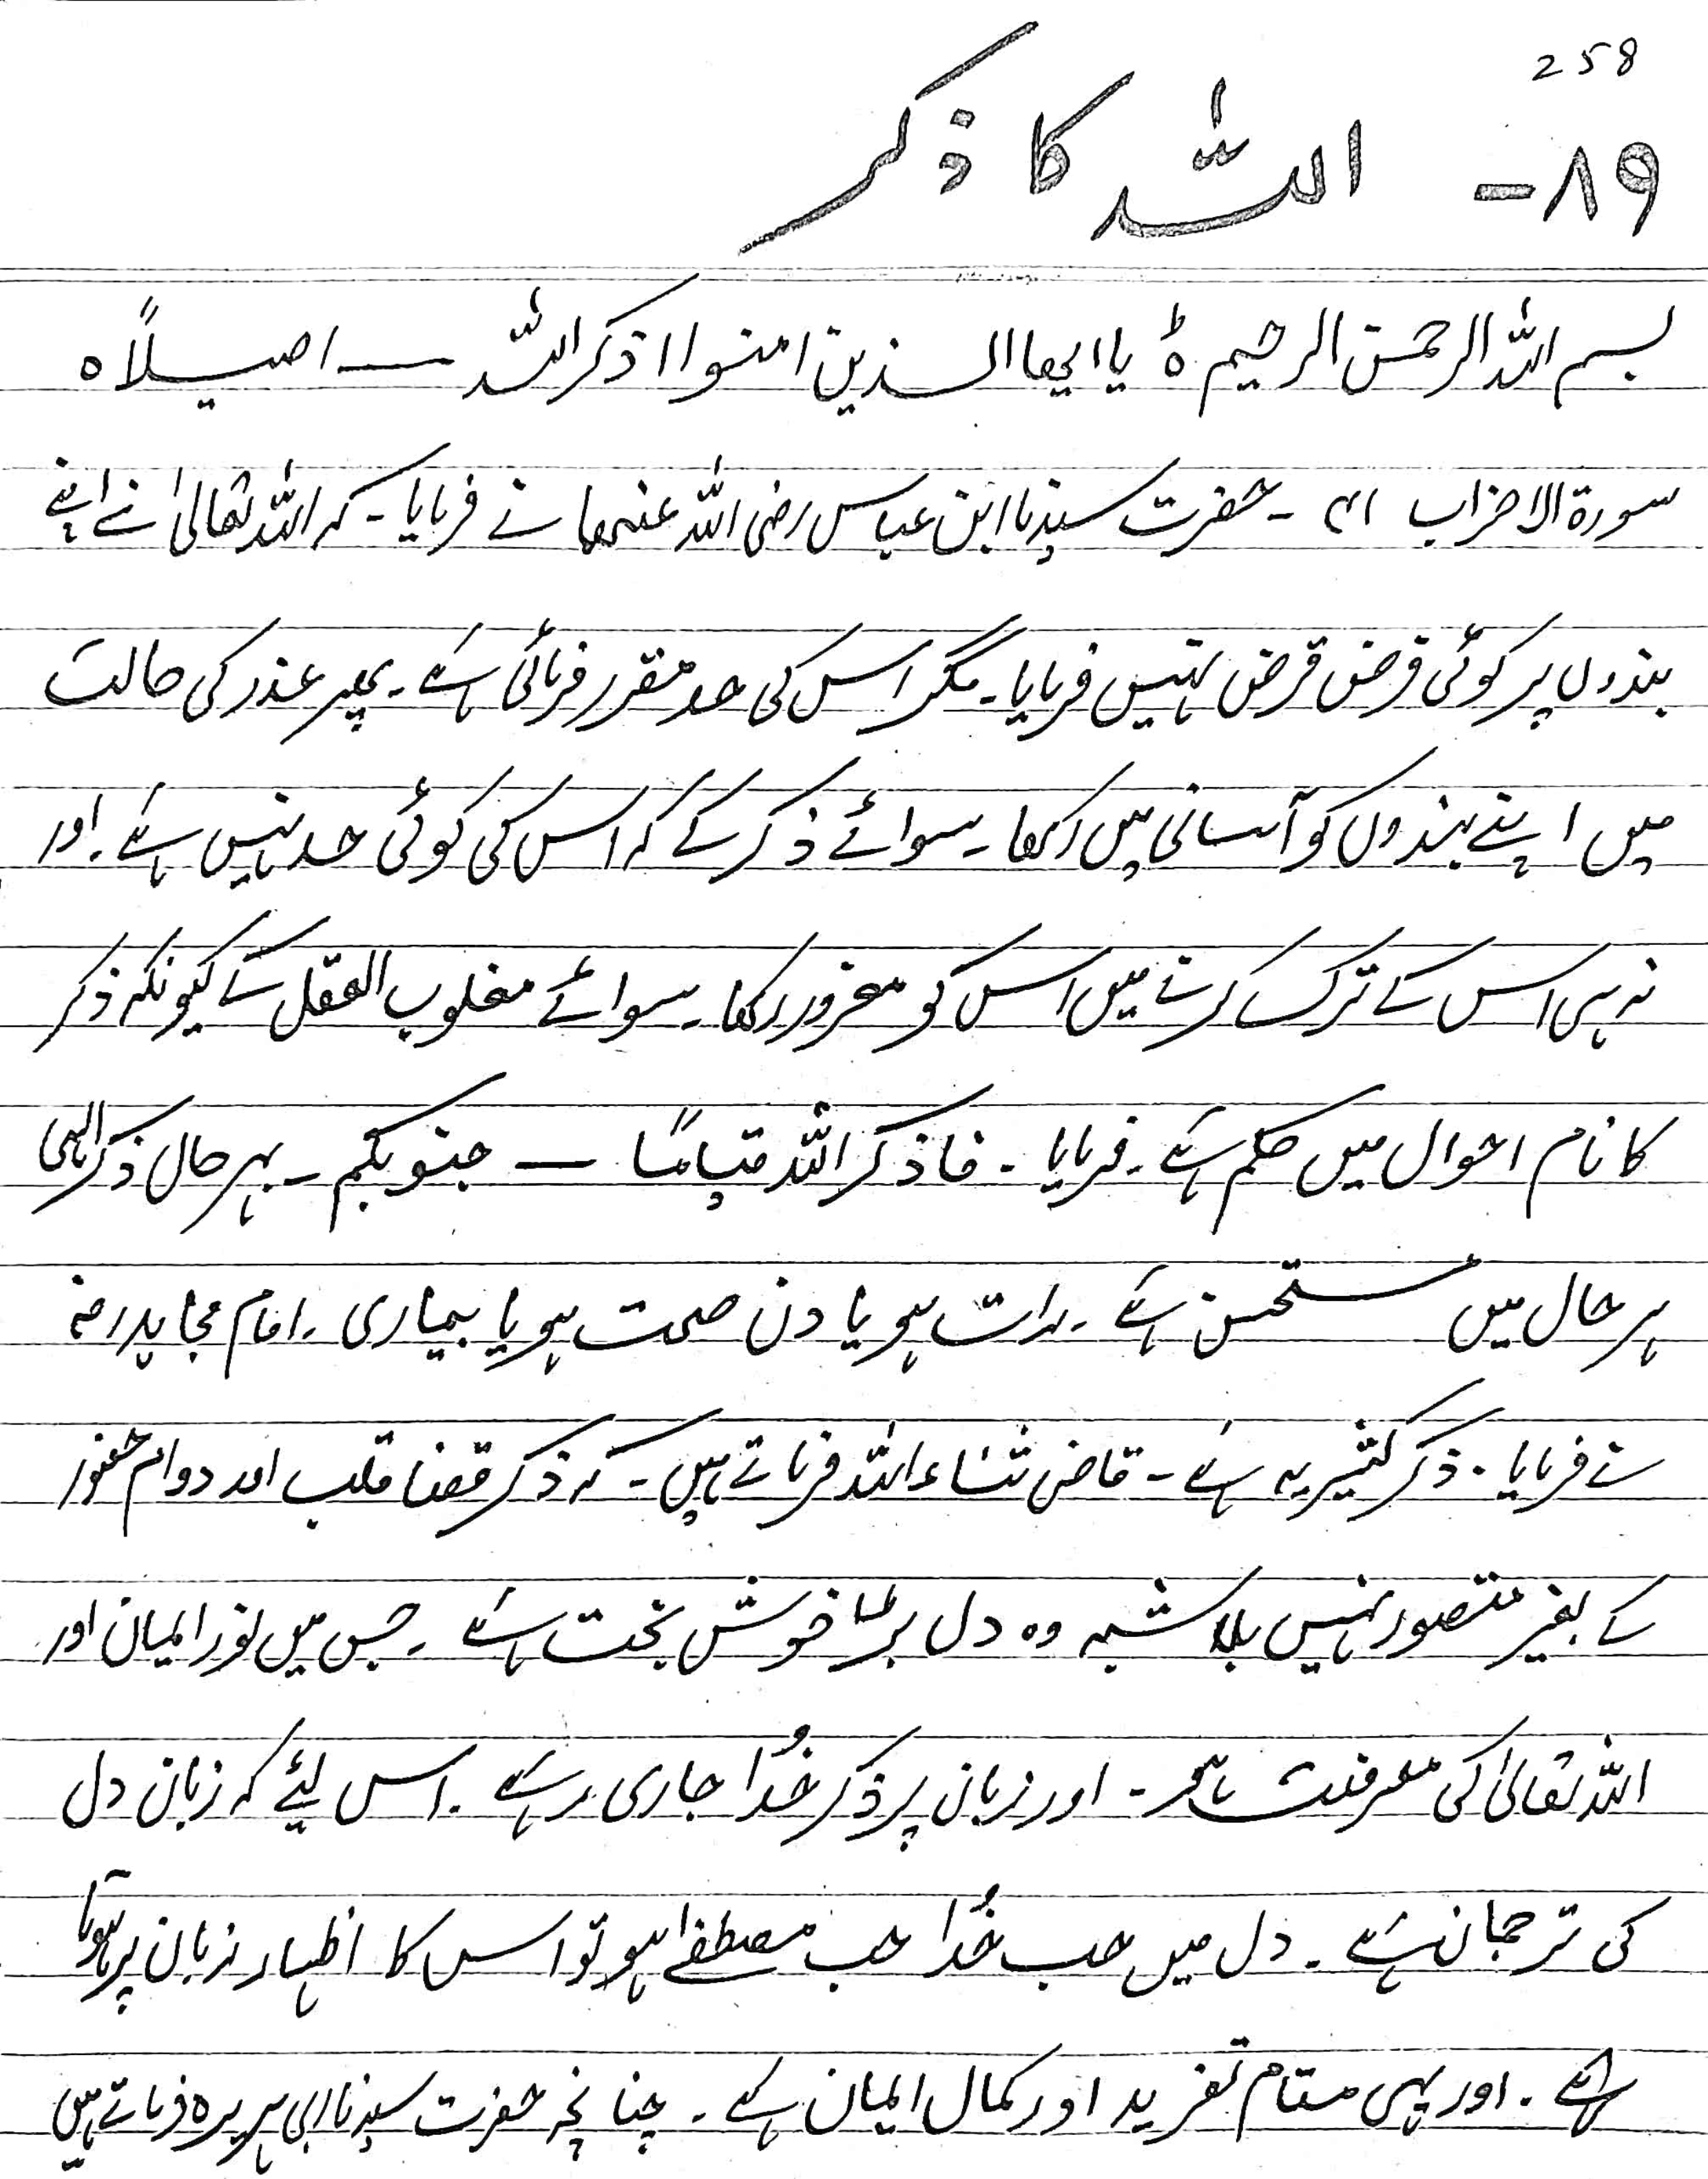 258
۸۹- اللہ کا ذکر
بسم اللہ الرحمن الرحیم ہ یا ایھا الذین امنوا اذکر اللہ — اصیلاً ہ
سورۃ الاحزاب ۴۱ - حضرت سیدنا ابن عباس رضی اللہ عنھما نے فرمایا - کہ اللہ تعالیٰ نے اپنے
بندوں پر کوئی فرض فرض نہیں فرمایا - مگر اس کی حد مقرر فرمائی ہے - پھر عذر کی حالت
میں اپنے بندوں کو آسانی میں رکھا - سوائے ذکر کے کہ اس کی کوئی حد نہیں ہے - اور
نہ ہی اس کے ترک کرنے میں اس کو معذور رکھا - سوائے مغلوب العقل کے کیونکہ ذکر
کا نام احوال میں حکم ہے - فرمایا - فاذکر اللہ قیامًا — جنوبکم - بہر حال ذکر الہی
ہر حال میں مستحسن ہے - رات ہو یا دن صحت ہو یا بیماری - امام مجاہد رضہ
نے فرمایا - ذکر کثیر یہ ہے - قاضی ثناء اللہ فرماتے ہیں - کہ ذکر قلب اور دوام حضور
کے بغیر متصور نہیں بلا شبہ وہ دل بڑا خوش بخت ہے - جس میں نور ایمان اور
اللہ تعالیٰ کی معرفت ہو - اور زبان پر ذکر خُدا جاری رہے - اس لیئے کہ زبان دل
کی ترجمان ہے - دل میں حب خُدا حب مصطفےٰ ہو تو اس کا اظہار زبان پر ہوتا
ہے - اور یہی مقام تفرید اور کمال ایمان ہے - چنانچہ حضرت سیدنا ابی ہریرہ فرماتے ہیں